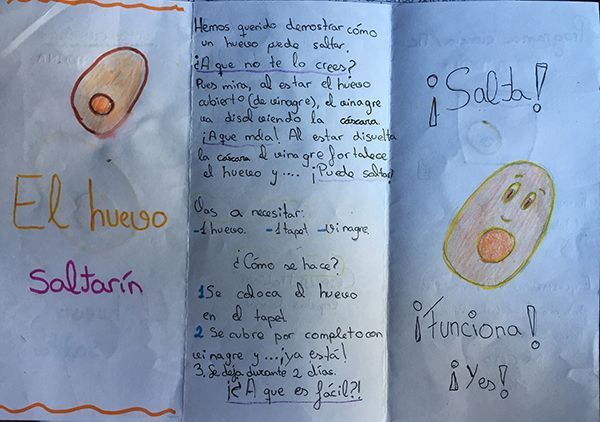 El huevo
Saltarín
Hemos querido demostrar cómo
un huevo puede saltar.
¿A que no te lo crees?
Pues mira, al estar el huevo
cubierto (de vinagre), el vinagre
va disolviendo la cáscara.
¡A que mola! Al estar disuelta
la cáscara el vinagre fortalece
el huevo y.... ¡Puede saltar!
Vas a necesitar:
-1 huevo. -1 taper -vinagre
¿Cómo se hace?
1 Se coloca el huevo
en el taper
2 Se cubre por completo con
vinagre y...¡ya está!
3. Se deja durante 2 días.
¡¿A que es fácil?!
¡Salta!
¡Funciona!
¡Yes!